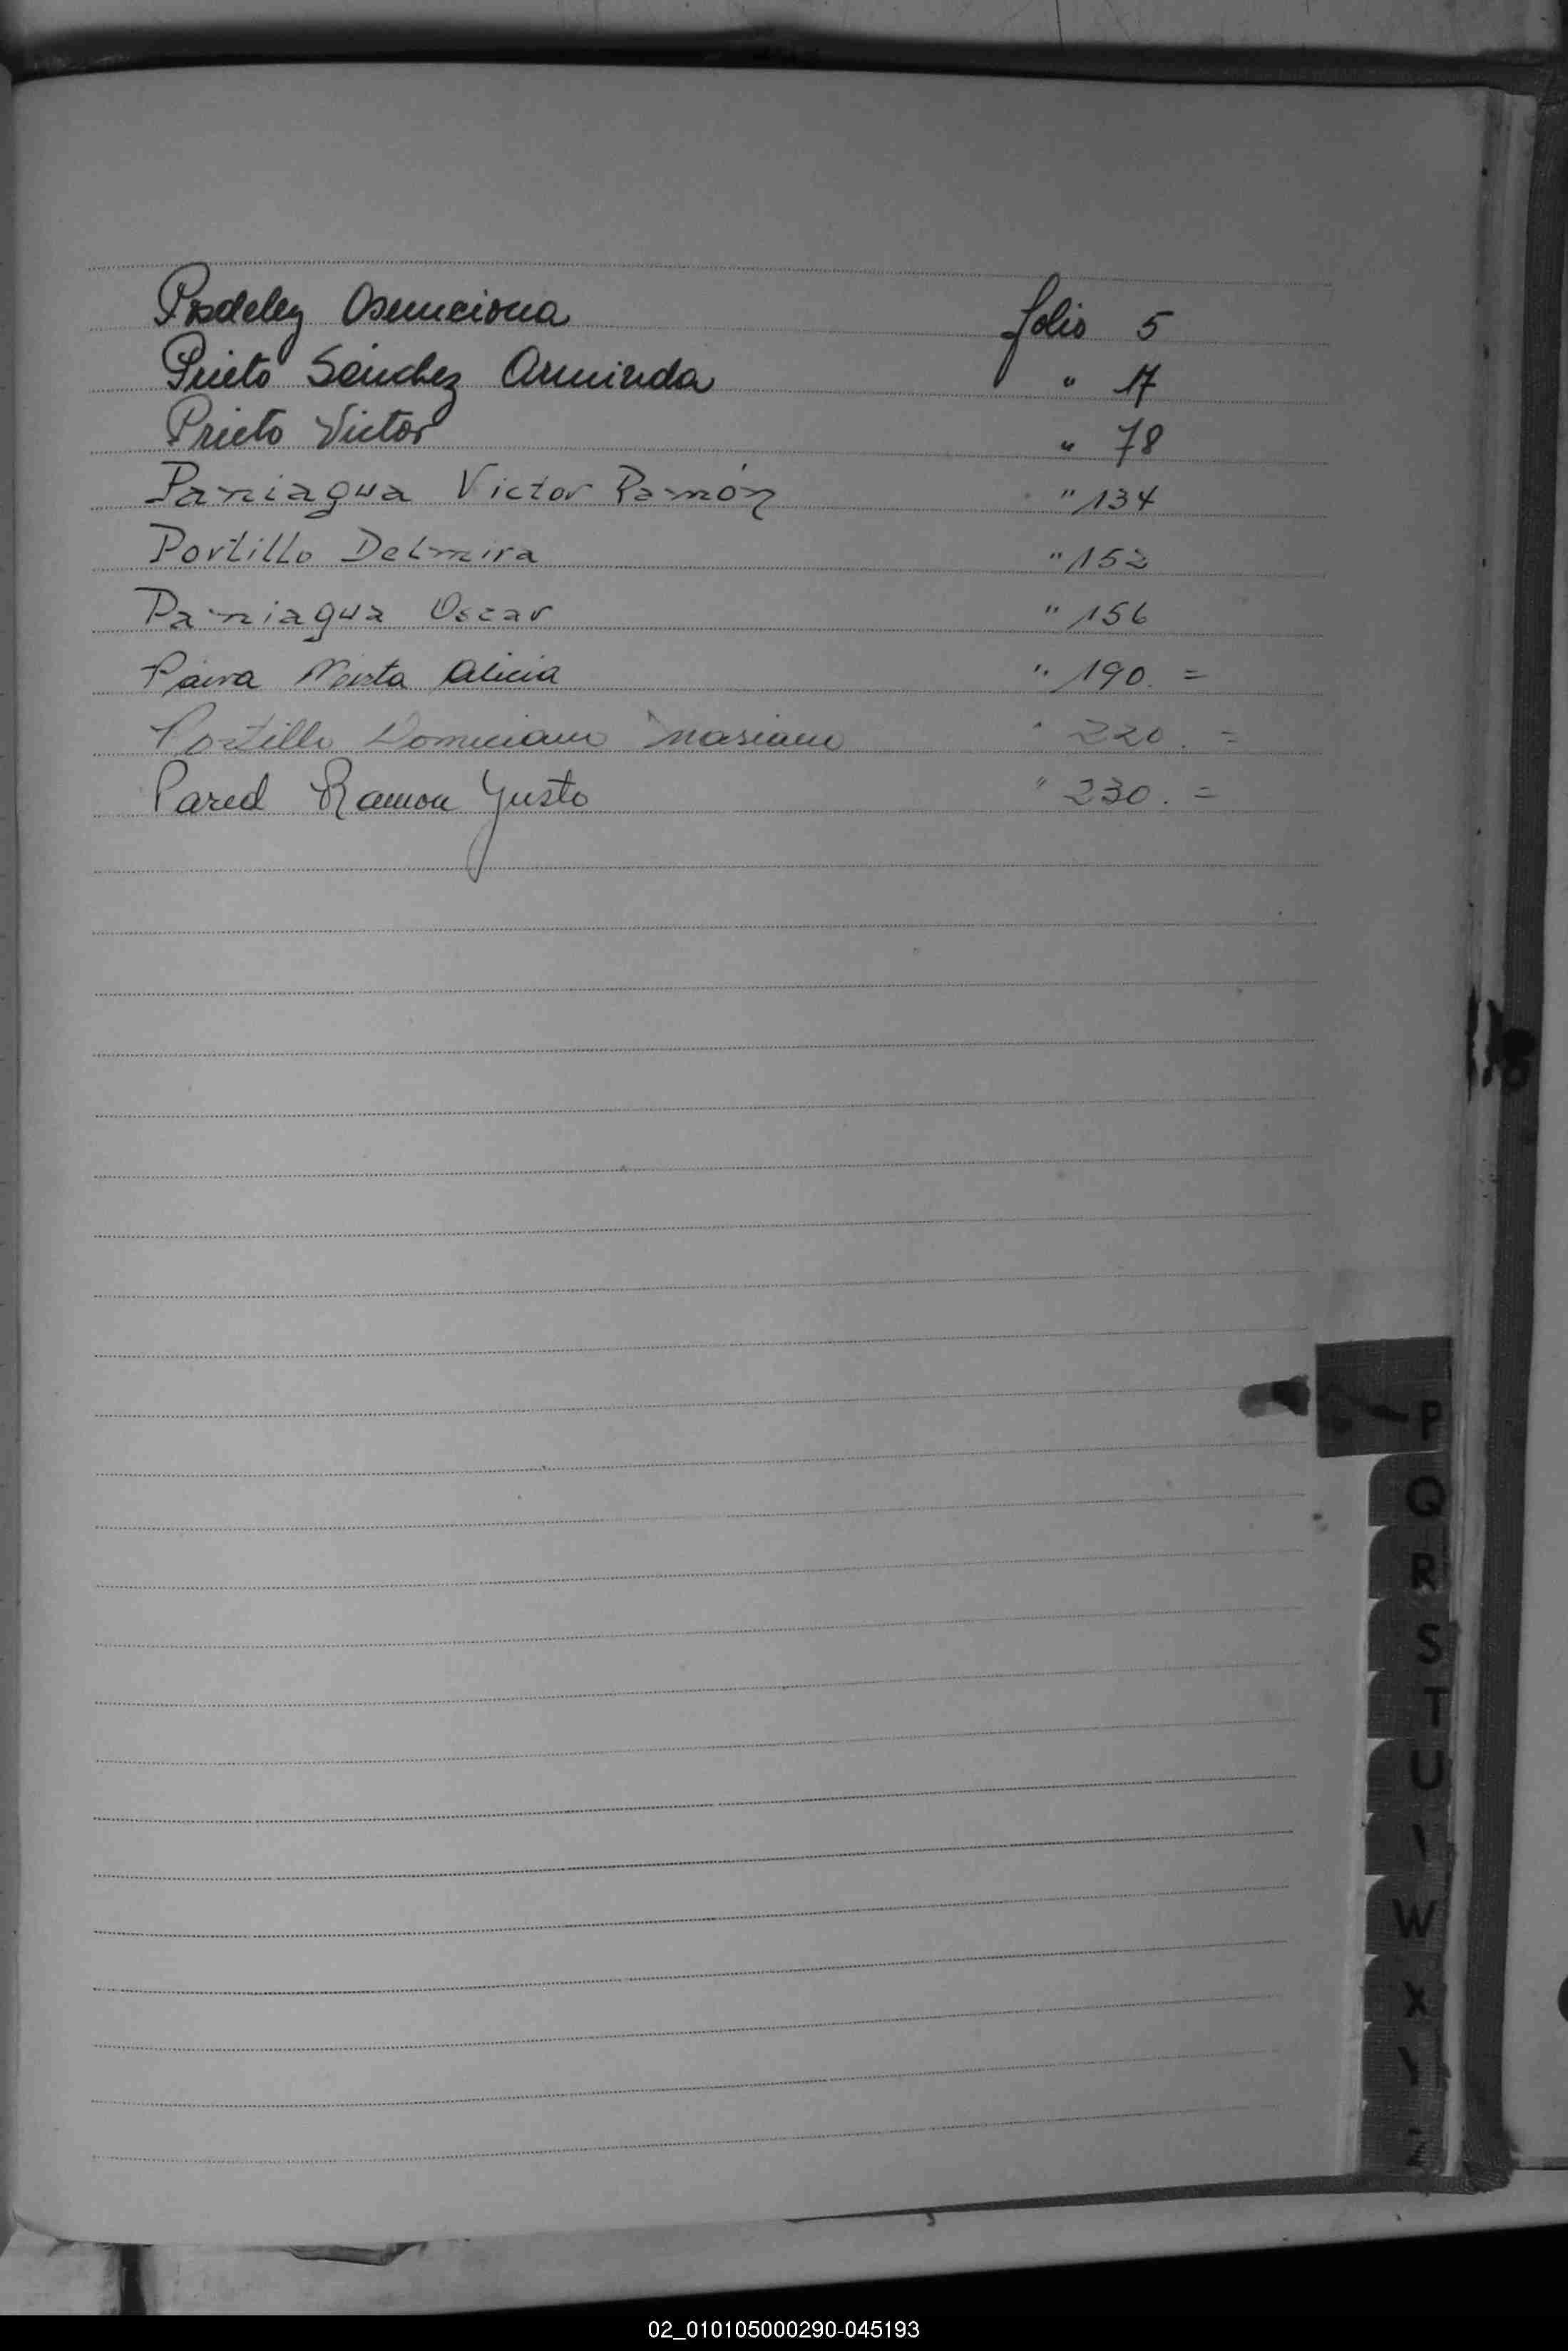 Asunciona folio 5
Prieto Sánchez Arminda " 17
Prieto Victor " 78
Paniagua Victor Ramón " 134
Portillo Delmira " 152
Paniagua Oscar " 156
Paiva Mirta Alicia " 190. =
Portillo Domiciano Mariano " 220. =
Pared Ramon Justo " 230. =
P
Q
R
S
T
U
W
X
Y
02_010105000290-045193